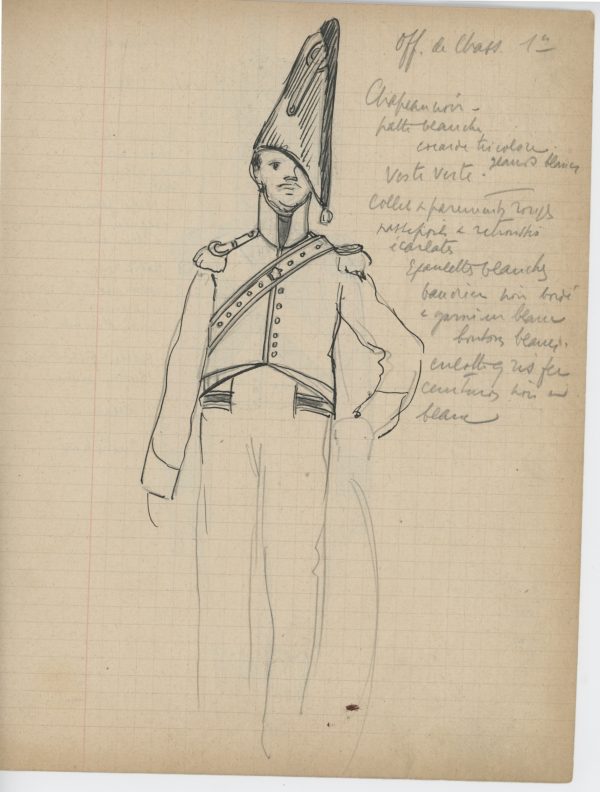 Off. de Chass. 1er
Chapeau noir -
patte blanche
cocarde tricolore
glands blancs
Veste verte.
Collet & parements rouges
passepoils & retroussis
écarlates
Epaulettes blanches
baudrier noir bordé
& garni en blanc
boutons blancs.
culotte gris fer
ceinturon noir
blanc